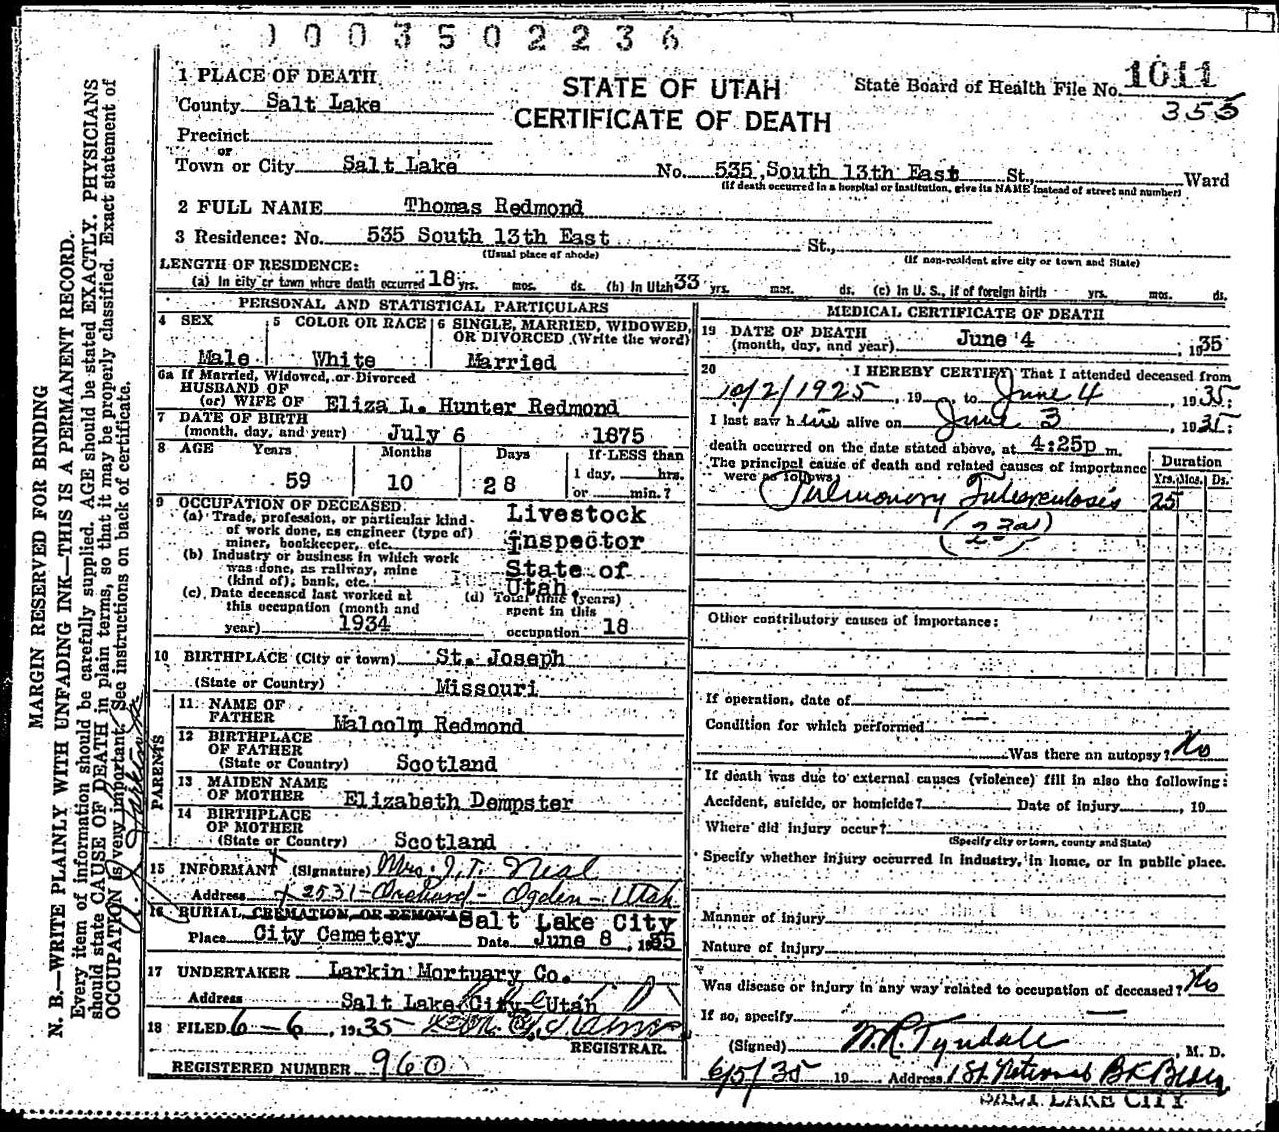 1003502236
1 PLACE OF DEATH
STATE OF UTAH
CERTIFICATE OF DEATH
State Board of Health File No. 1011
355
County Salt Lake
Precinct
or
Town or City Salt Lake No. 535 South 13th East St., Ward
(If death occurred in a hospital or institution, give its NAME instead of street and number)
2 FULL NAME Thomas Redmond
3 Residence: No. 535 South 13th East St.,
(Usual place of abode) (If non-resident give city or town and State)
LENGTH OF RESIDENCE:
(a) In city or town where death occurred 18 yrs. mos. ds. (b) In Utah 33 yrs. mos. ds. (c) In U. S., if of foreign birth yrs. mos. ds.
PERSONAL AND STATISTICAL PARTICULARS
4 SEX Male
5 COLOR OR RACE White
6 SINGLE, MARRIED, WIDOWED, OR DIVORCED (Write the word) Married
6a If Married, Widowed, or Divorced
HUSBAND OF
(or) WIFE OF Eliza L. Hunter Redmond
7 DATE OF BIRTH
(month, day, and year) July 6 1875
8 AGE Years Months Days If LESS than
59 10 28 1 day, hrs.
or min.?
9 OCCUPATION OF DECEASED:
(a) Trade, profession, or particular kind of work done, as engineer (type of) miner, bookkeeper, etc. Livestock Inspector
(b) Industry or business in which work was done, as railway, mine (kind of); bank, etc. State of Utah.
(c) Date deceased last worked at this occupation (month and year) 1934
(d) Total time (years) spent in this occupation 18
10 BIRTHPLACE (City or town) St. Joseph
(State or Country) Missouri
PARENTS
11 NAME OF FATHER Malcolm Redmond
12 BIRTHPLACE OF FATHER
(State or Country) Scotland
13 MAIDEN NAME OF MOTHER Elizabeth Dempster
14 BIRTHPLACE OF MOTHER
(State or Country) Scotland
15 INFORMANT (Signature) Mrs. J. T. Neal
Address 2531 - Orchard - Ogden - Utah
16 BURIAL CREMATION, OR REMOVAL Salt Lake City
Place City Cemetery Date June 8, 1935
17 UNDERTAKER Larkin Mortuary Co.
Address Salt Lake City Utah
18 FILED 6-6, 1935
REGISTRAR.
REGISTERED NUMBER 960
MEDICAL CERTIFICATE OF DEATH
19 DATE OF DEATH
(month, day, and year) June 4, 1935
20 I HEREBY CERTIFY, That I attended deceased from
10/2/1925, 19 to June 4, 1935;
I last saw him alive on June 3, 1935;
death occurred on the date stated above, at 4:25p m.
The principal cause of death and related causes of importance were as follows: Duration
Yrs. Mos. Ds.
Pulmonary Tuberculosis 25
Other contributory causes of importance:
If operation, date of —
Condition for which performed —
Was there an autopsy? No
If death was due to external causes (violence) fill in also the following:
Accident, suicide, or homicide? Date of injury, 19
Where did injury occur?
(Specify city or town, county and State)
Specify whether injury occurred in industry, in home, or in public place.
Manner of injury
Nature of injury
Was disease or injury in any way related to occupation of deceased? No
If so, specify —
(Signed) W. R. Tyndale, M. D.
6/5/35 19 Address 1st National Bk Bldg
SALT LAKE CITY
MARGIN RESERVED FOR BINDING
N. B.—WRITE PLAINLY WITH UNFADING INK—THIS IS A PERMANENT RECORD.
Every item of information should be carefully supplied. AGE should be stated EXACTLY. PHYSICIANS
should state CAUSE OF DEATH in plain terms, so that it may be properly classified. Exact statement of
OCCUPATION is very important. See instructions on back of certificate.